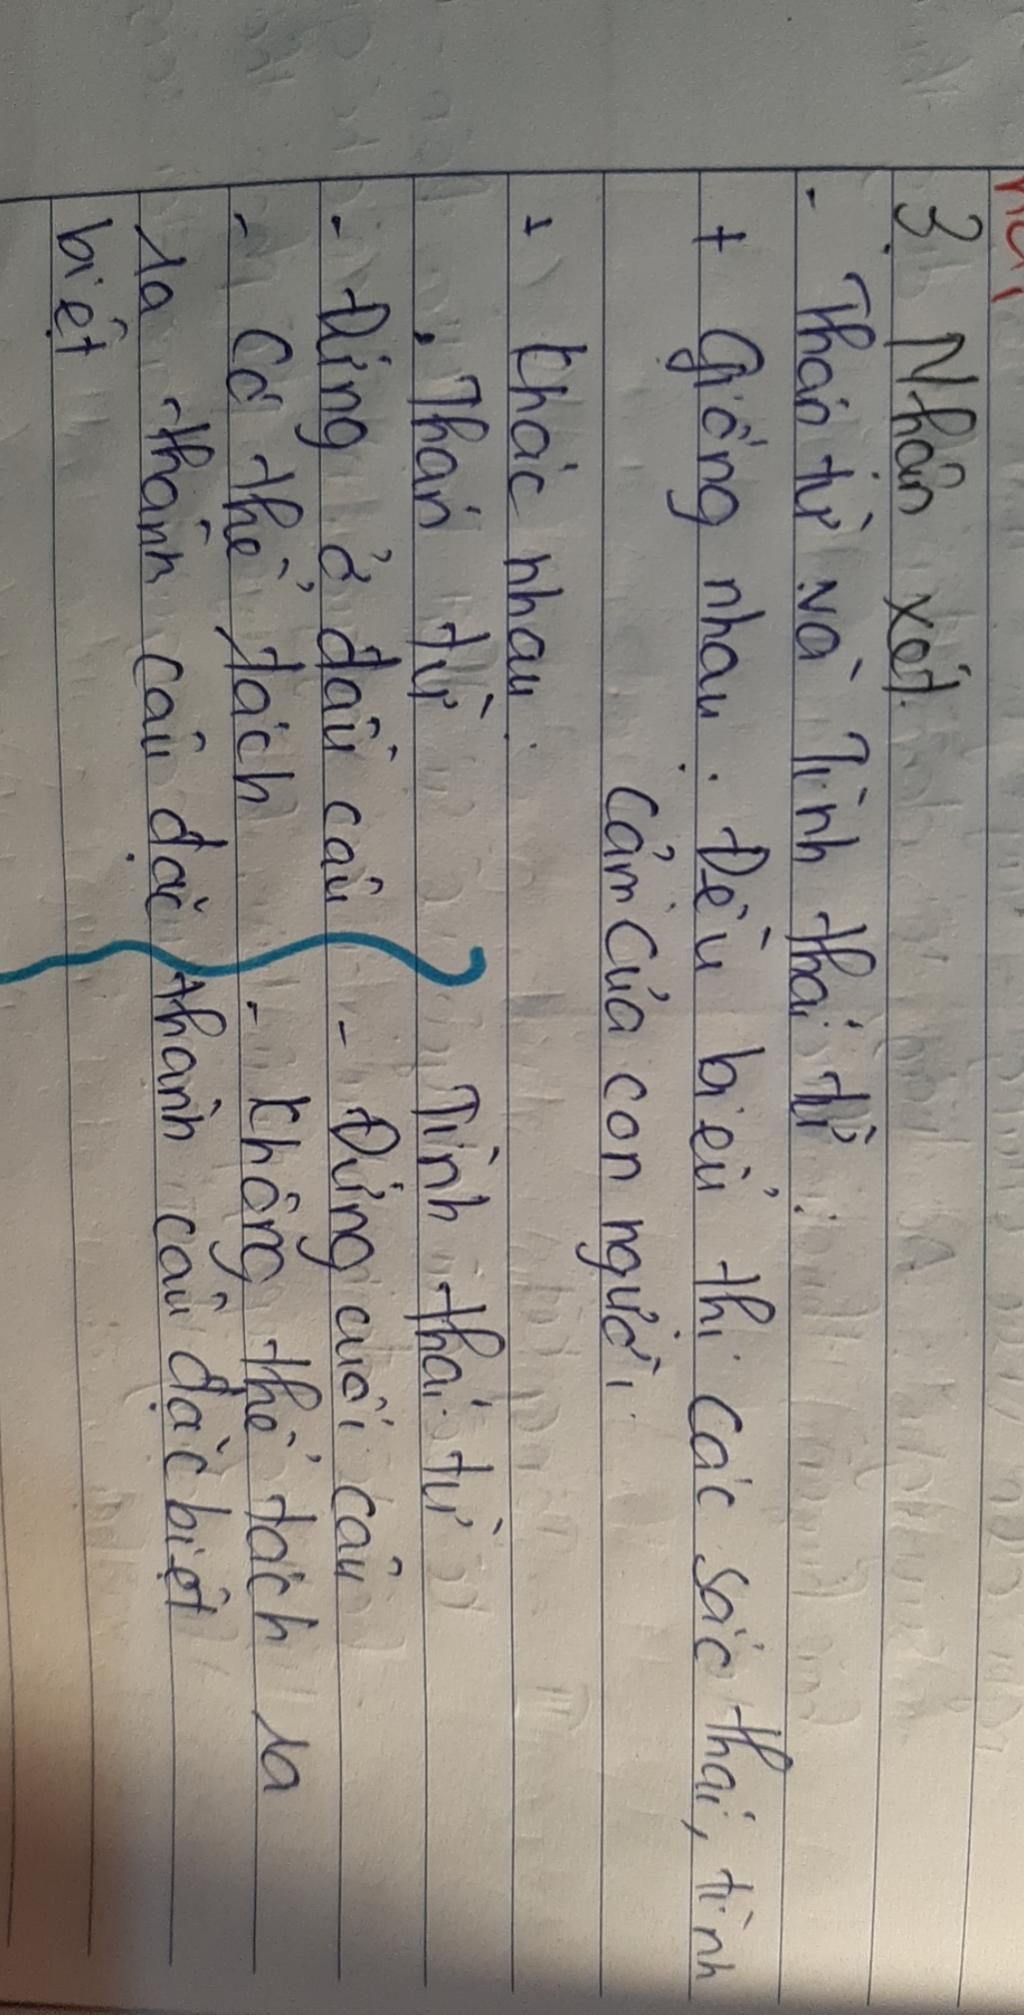 3. Nhận xét
- Thán từ và Tình thái từ:
+ Giống nhau: Đều biểu thị các sắc thái, tình
cảm của con người.
+ Khác nhau:
. Thán từ Tình thái từ
- Đứng ở đầu câu - Đứng cuối câu
- Có thể tách - không thể tách ra
ra thành câu đặc thành câu đặc biệt
biệt